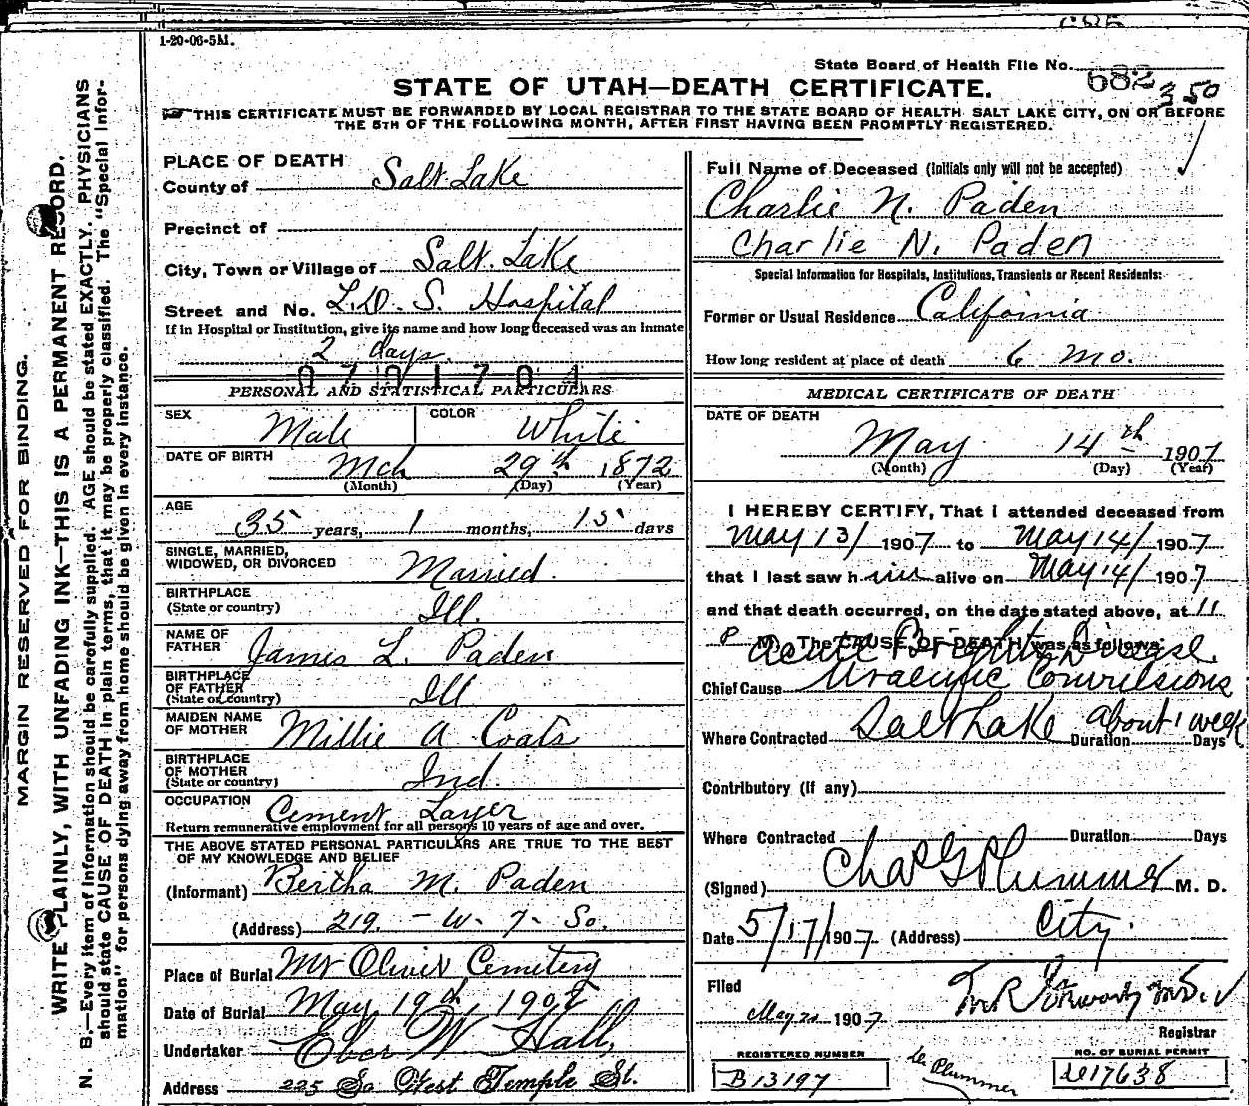 1-20-06-5M.
State Board of Health File No. 682
3 50
STATE OF UTAH—DEATH CERTIFICATE.
THIS CERTIFICATE MUST BE FORWARDED BY LOCAL REGISTRAR TO THE STATE BOARD OF HEALTH SALT LAKE CITY, ON OR BEFORE
THE 5TH OF THE FOLLOWING MONTH, AFTER FIRST HAVING BEEN PROMPTLY REGISTERED.
MARGIN RESERVED FOR BINDING.
WRITE PLAINLY, WITH UNFADING INK—THIS IS A PERMANENT RECORD.
N. B.—Every item of information should be carefully supplied. AGE should be stated EXACTLY. PHYSICIANS
should state CAUSE OF DEATH in plain terms, that it may be properly classified. The "Special Infor-
mation" for persons dying away from home should be given in every instance.
PLACE OF DEATH
County of Salt Lake
Precinct of
City, Town or Village of Salt Lake
Street and No. L.D.S. Hospital
If in Hospital or Institution, give its name and how long deceased was an inmate
2 days.
0701704
PERSONAL AND STATISTICAL PARTICULARS
SEX Male COLOR White
DATE OF BIRTH Mch 29th 1872
(Month) (Day) (Year)
AGE
35 years, 1 months, 15 days
SINGLE, MARRIED,
WIDOWED, OR DIVORCED Married.
BIRTHPLACE
(State or country) Ill.
NAME OF
FATHER James L. Paden
BIRTHPLACE
OF FATHER
(State or country) Ill
MAIDEN NAME
OF MOTHER Millie A Coats
BIRTHPLACE
OF MOTHER
(State or country) Ind.
OCCUPATION Cement Layer
Return remunerative employment for all persons 10 years of age and over.
THE ABOVE STATED PERSONAL PARTICULARS ARE TRUE TO THE BEST
OF MY KNOWLEDGE AND BELIEF
(Informant) Bertha M. Paden
(Address) 219. - W. 7- So.
Place of Burial Mt Olivet Cemetery
Date of Burial May 19th 1907
Undertaker Eber W Hall,
Address 225 So West Temple St.
Full Name of Deceased (Initials only will not be accepted)
Charlie N. Paden
Charlie N. Paden
Special Information for Hospitals, Institutions, Transients or Recent Residents:
Former or Usual Residence California
How long resident at place of death 6 mo.
MEDICAL CERTIFICATE OF DEATH
DATE OF DEATH
May 14th 1907
(Month) (Day) (Year)
I HEREBY CERTIFY, That I attended deceased from
May 13/ 1907 to May 14/ 1907
that I last saw him alive on May 14/ 1907
and that death occurred, on the date stated above, at 11
P M. The CAUSE OF DEATH was as follows:
Acute Brights Disease
Chief Cause Uraemic Convulsions
Where Contracted Salt Lake Duration about 1 week Days
Contributory (If any)
Where Contracted Duration Days
(Signed) Chas G Plummer M. D.
Date 5/17/1907 (Address) City.
Filed
May 21 1907
Registrar
REGISTERED NUMBER
B13197
Plummer
NO. OF BURIAL PERMIT
17638